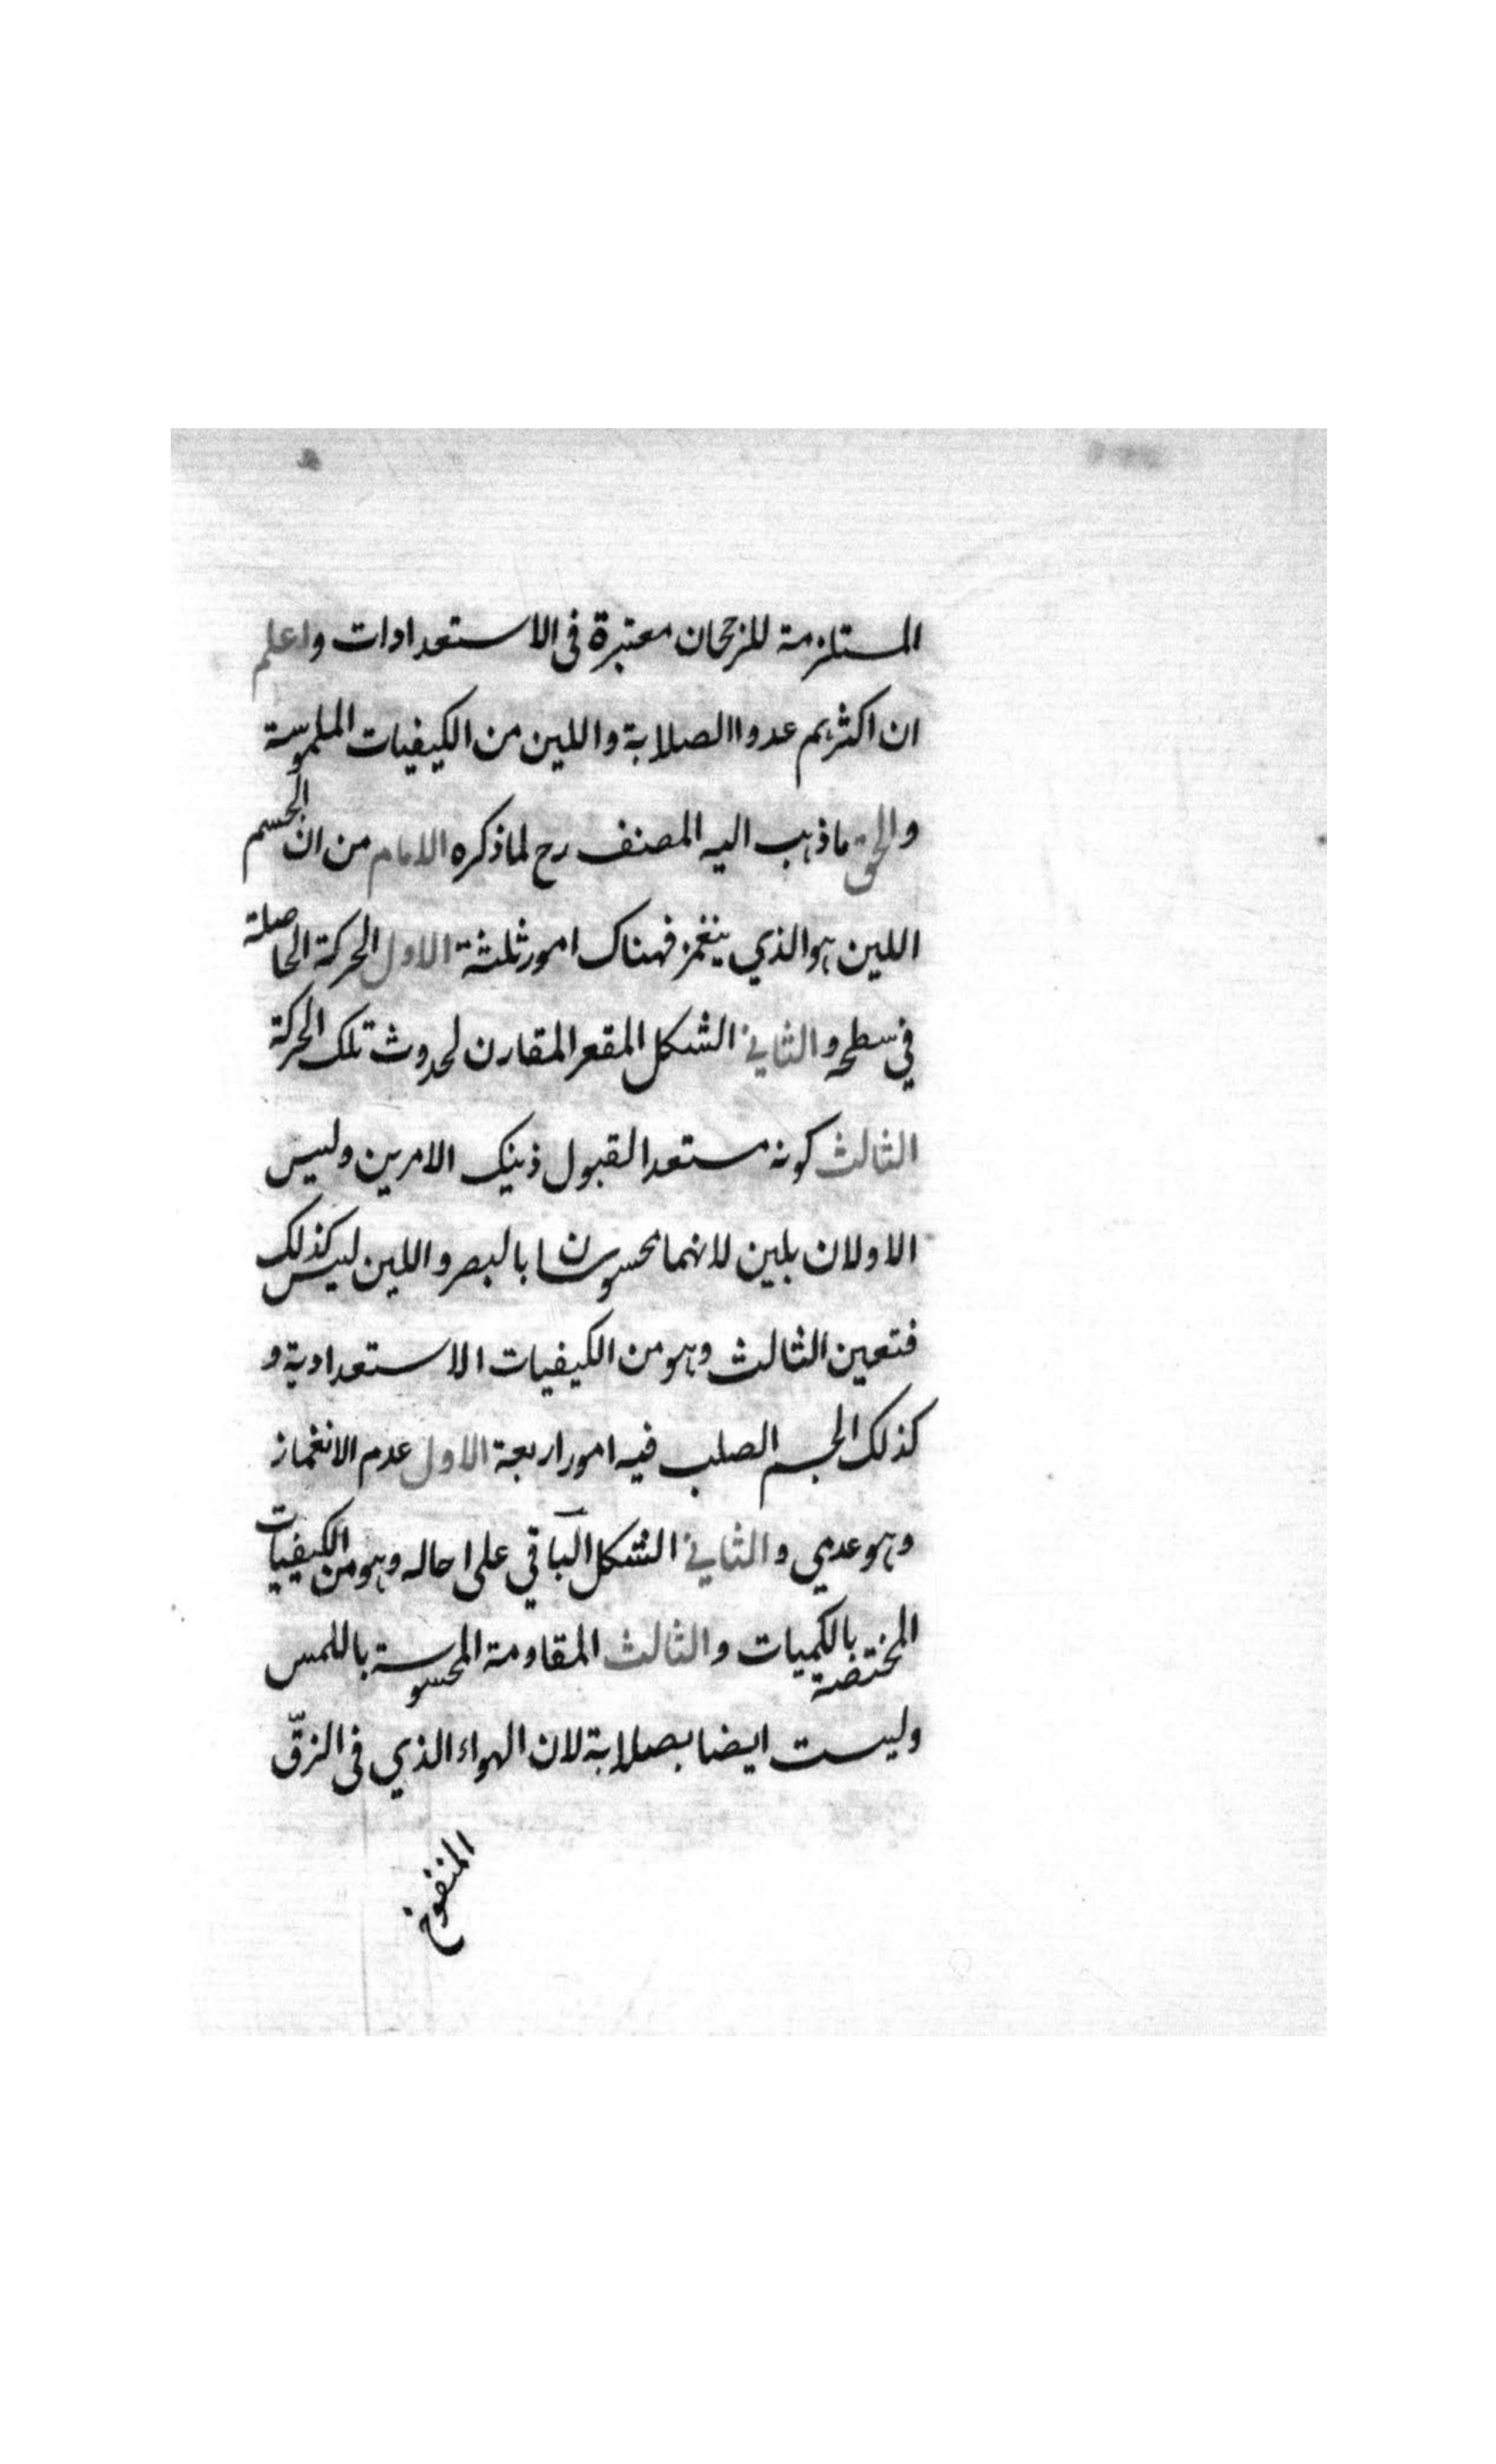 المستلزمة للرجحان معتبرة فى الاستعدادات واعلم
ان اكثرهم عدوا الصلابة واللين من الكيفيات الملموسة
والحق ماذهب اليه المصنف رح لماذكره الامام من ان الجسم
اللين هو الذي ينغمز فهناك امور ثلثة الاول الحركة الحاصلة
في سطحه والثاني الشكل المقعر المقارن لحدوث تلك الحركة
الثالث كونه مستعدا لقبول ذينك الامرين وليس
الاولان بلين لانهما محسوسان بالبصر واللين ليس كذلك
فتعين الثالث وهو من الكيفيات الاستعدادية و
كذلك الجسم الصلب فيه امور اربعة الاول عدم الانغماز
وهو عدمي والثاني الشكل الباقي على حاله وهو من الكيفيات
المختصة بالكميات والثالث المقاومة المحسوسة باللمس
وليست ايضا بصلابة لان الهواء الذي فى الزقّ
المنفوخ